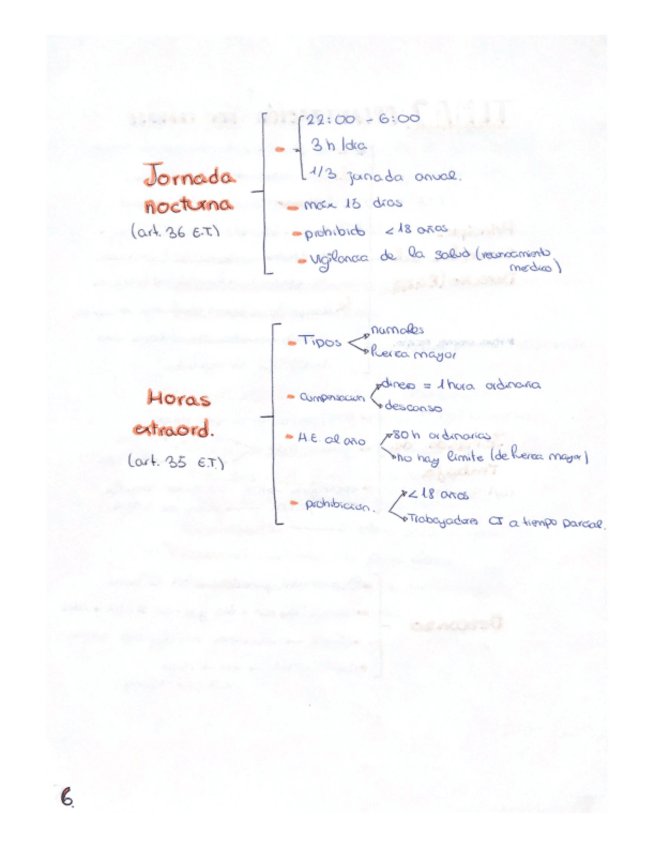 Jornada
nocturna
(art. 36 E.T)
22:00 - 6:00
3 h / dia
1/3 jornada anual.
- máx 15 dias
- prohibido < 18 años
- vigilancia de la salud (reconocimiento
medico)
Horas
extraord.
(art. 35 E.T)
- Tipos
normales
fuerza mayor
- compensacion
dinero = 1 hora ordinaria
descanso
- H.E. al año
80 h ordinarias
no hay limite (de fuerza mayor)
- prohibicion.
< 18 años
Trabajadores a tiempo parcial.
6.